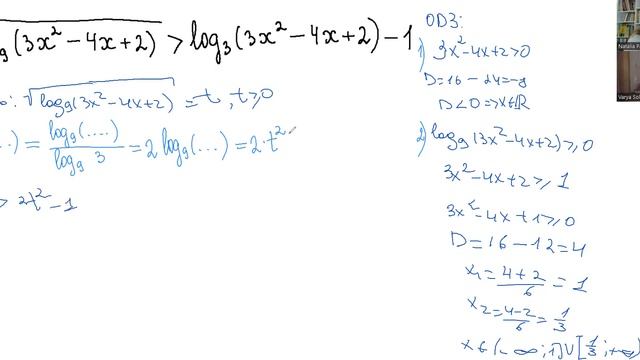 √log₉(3x² − 4x + 2) > log₃(3x² − 4x + 2) − 1
√log₉(3x² − 4x + 2) = t, t ≥ 0
...) = log₉(....) / log₉ 3 = 2 log₉(...) = 2·t²
> 2t² − 1
ОДЗ:
1) 3x² − 4x + 2 > 0
D = 16 − 24 = −8
D < 0 ⇒ x ∈ ℝ
2) log₉(3x² − 4x + 2) ≥ 0
3x² − 4x + 2 ≥ 1
3x² − 4x + 1 ≥ 0
D = 16 − 12 = 4
x₁ = (4 + 2)/6 = 1
x₂ = (4 − 2)/6 = 1/3
x ∈ (−∞; 1] ∪ [1/3; +∞)
Natalia
Varya